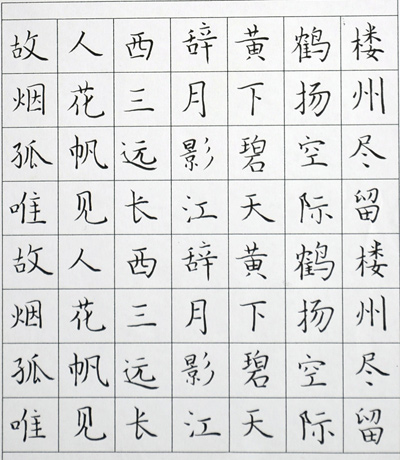 故人西辞黄鹤楼
烟花三月下扬州
孤帆远影碧空尽
唯见长江天际留
故人西辞黄鹤楼
烟花三月下扬州
孤帆远影碧空尽
唯见长江天际留